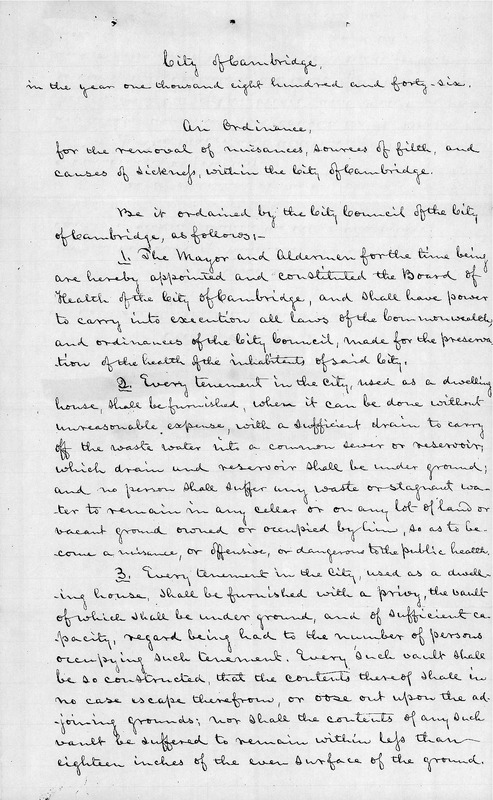 City of Cambridge.
in the year one thousand eight hundred and forty-six.
An Ordinance,
for the removal of nuisances, sources of filth, and
causes of sickness, within the City of Cambridge.
Be it ordained by the City Council of the City
of Cambridge, as follows;-
1. The Mayor and Aldermen for the time being
are hereby appointed and constituted the Board of
Health of the City of Cambridge, and shall have power
to carry into execution all laws of the Commonwealth,
and ordinances of the City Council, made for the preserva-
tion of the health of the inhabitents of said City.
2. Every tenement in the City, used as a dwelling
house, shall be furnished, when it can be done without
unreasonable expense, with a sufficient drain to carry
off the waste water into a common sewer or reservoir,
which drain and reservoir shall be under ground;
and no person shall suffer any waste or stagnant wa-
ter to remain in any cellar or on any lot of land or
vacant ground owned or occupied by him, so as to be-
come a nisance, or offensive, or dangerous to the public health.
3. Every tenement in the City, used as a dwell-
ing house, shall be furnished with a privy, the vault
of which shall be under ground, and of sufficient ca-
pacity, regard being had to the number of persons
occupying such tenement. Every such vault shall
be so constructed, that the contents thereof shall in
no case escape therefrom, or oose out upon the ad-
joining grounds; nor shall the contents of any such
vault be suffered to remain within less than
eighteen inches of the even surface of the ground.